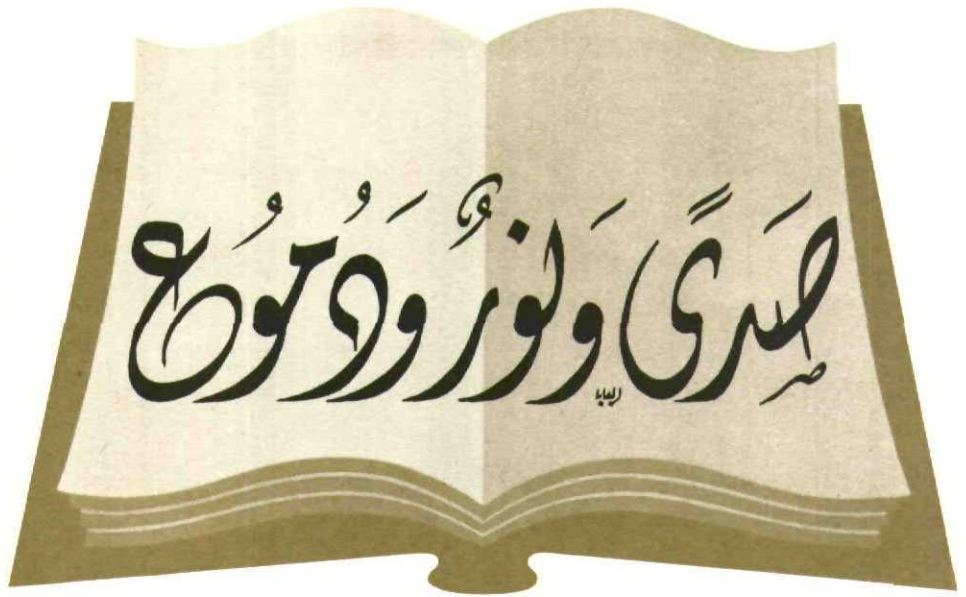 صَدًى وَنورٌ وَدُموُع